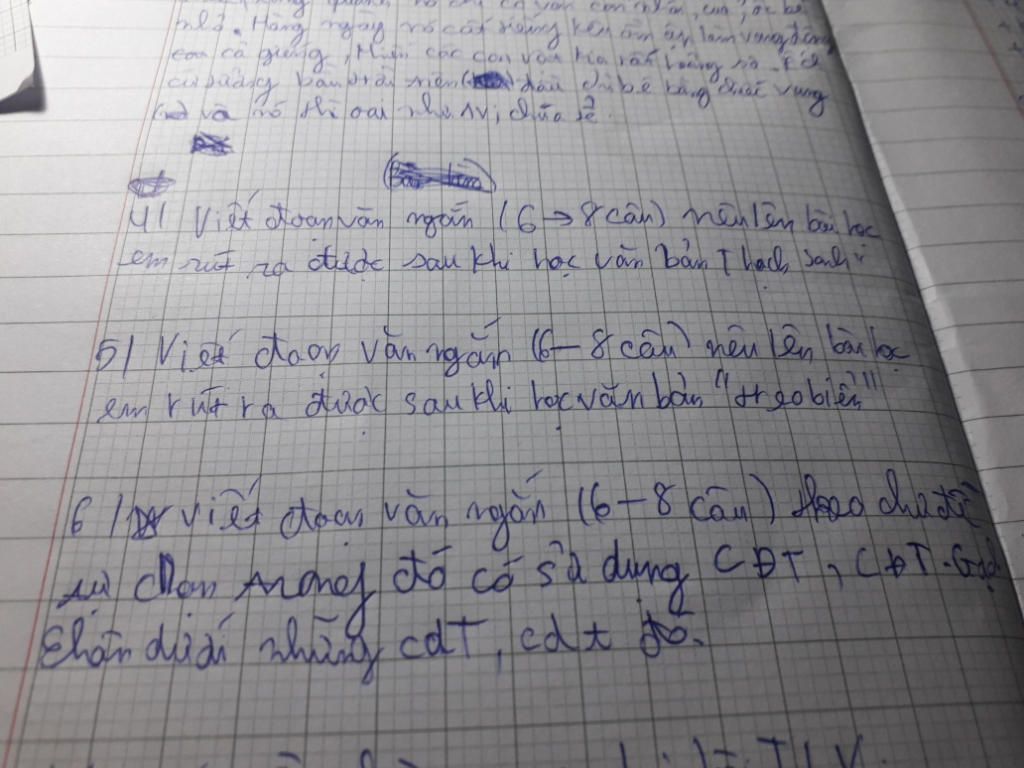 nhỏ. Hàng ngày nó cất tiếng kêu ồm ộp làm vang động
cả giếng, khiến các con vật kia rất hoảng sợ. Ếch
cứ tưởng bầu trời trên đầu chỉ bé bằng chiếc vung
và nó thì oai như 1 vị chúa tể.
4/ Viết đoạn văn ngắn (6 → 8 câu) nêu lên bài học
em rút ra được sau khi học văn bản Thạch Sanh
5/ Viết đoạn văn ngắn (6 – 8 câu) nêu lên bài học
em rút ra được sau khi học văn bản "treo biển"
6/ Viết đoạn văn ngắn (6 – 8 câu) theo chủ đề
tự chọn trong đó có sử dụng CĐT, CĐT. Gạch
chân dưới những cdT, cdt đó.